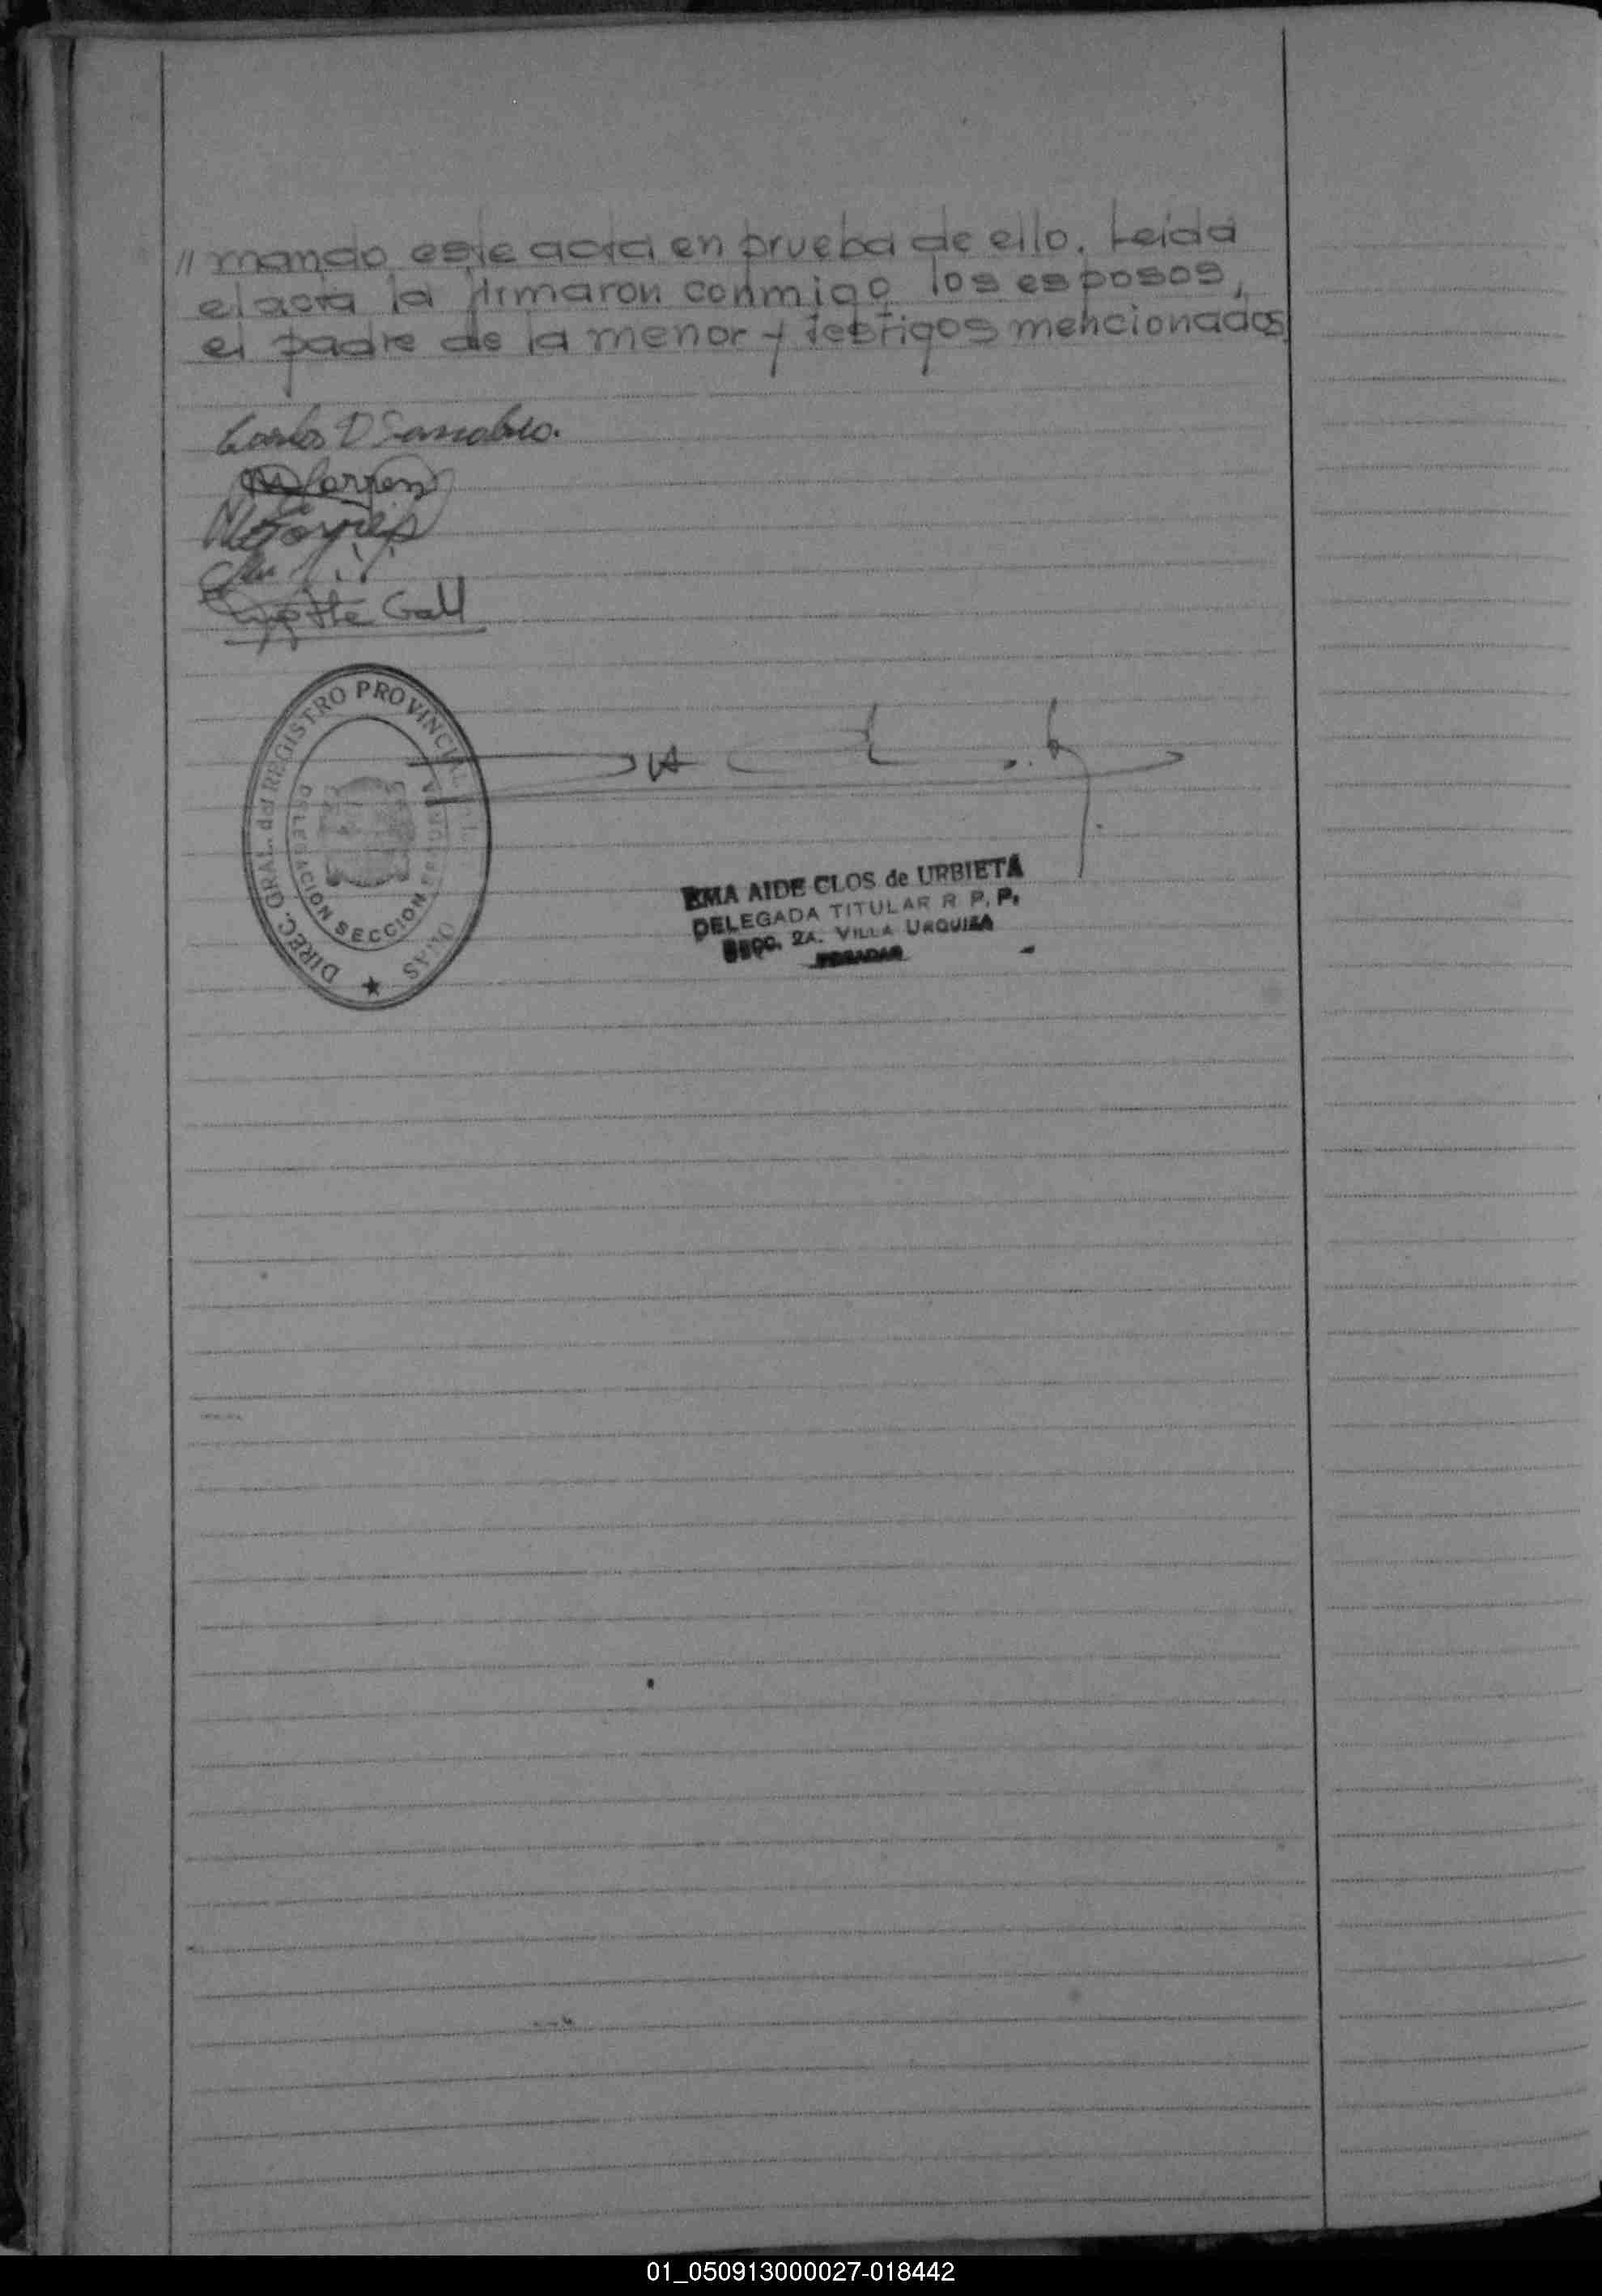 // mando este acta en prueba de ello. Leida
el acta la firmaron conmigo los esposos,
el padre de la menor y testigos mencionados
Carlos D
Torres
Gall
DIREC. GRAL. del REGISTRO PROVINCIAL
DELEGACION SECCION
EMA AIDE CLOS de URBIETA
DELEGADA TITULAR R. P. P.
Secc. 2A. VILLA URQUIZA
POSADAS
01_050913000027-018442